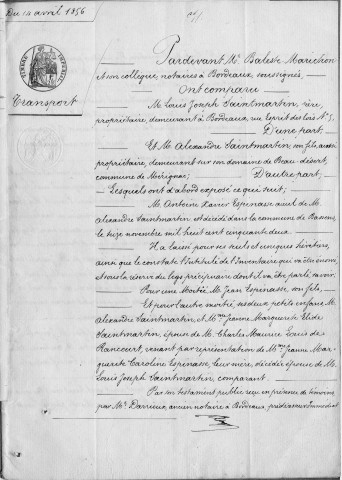 Du 14 avril 1856
TIMBRE IMPERIAL
Transport
Pardevant Me. Baleste Marichon
et son collègue, notaires à Bordeaux, soussignés,
Ont comparu
M. Louis Joseph Saintmartin père,
propriétaire, demeurant à Bordeaux, rue Esprit des lois No. 5,
D'une part,
Et M. Alexandre Saintmartin, son fils, aussi
propriétaire, demeurant sur son domaine de Beau-désert,
commune de Mérignac, D'autre part,
Lesquels ont d'abord exposé ce qui suit;
M. Antoine Xavier Espinasse aïeul de M.
Alexandre Saintmartin est décédé dans la commune de Bassens
le treize novembre mil huit cent cinquante deux.
Il a laissé pour ses seuls et uniques héritiers,
ainsi que le constate l'intitulé de l'Inventaire qui va être énoncé
et sous la réserve du legs préciputaire dont il va être parlé, savoir:
Pour une Moitié M. Jean Espinasse, son fils,
Et pour l'autre moitié, ses deux petits enfans M.
Alexandre Saintmartin et Mme Jeanne Marguerite Elide
Saintmartin, épouse de M. Charles Maurice Louis de
Rancourt, venant par représentation de Mme Jeanne Mar-
guerite Caroline Espinasse, leur mère, décédée épouse de M.
Louis Joseph Saintmartin, comparant.
Par son testament public reçu en présence de témoins
par Me. Darrieux, ancien notaire à Bordeaux, prédécesseur immédiat